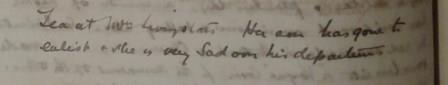 Tea at Mrs Livingston's Her son has gone to
enlist & she is very Sad over his departure